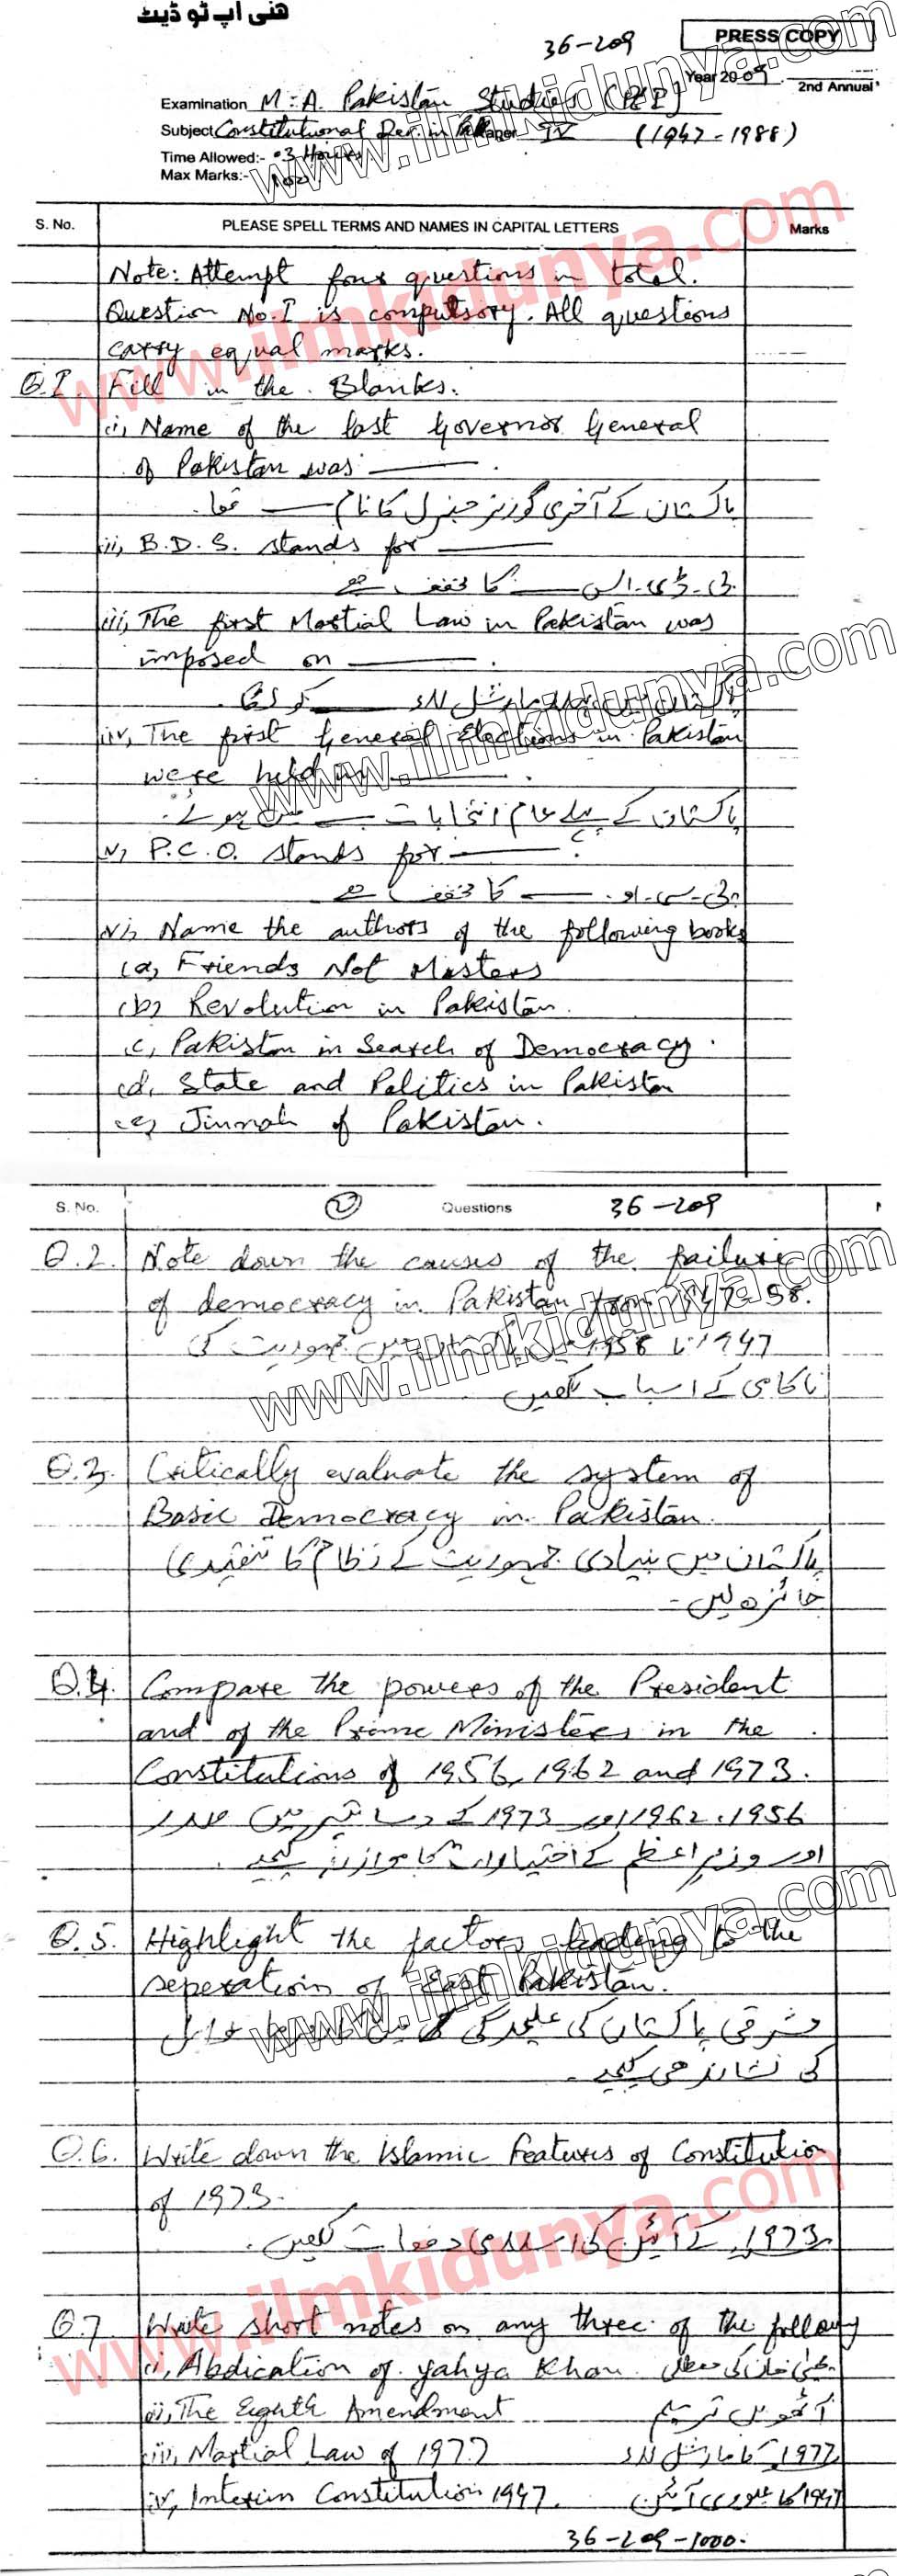 ھنی اپ ٹو ڈیٹ
36-209
PRESS COPY
Year 2009
2nd Annual
Examination M.A. Pakistan Studies (P-I)
Subject Constitutional Dev. in Pak Paper IV (1947-1988)
Time Allowed:- 3 Hours
Max Marks:- 100
S. No. PLEASE SPELL TERMS AND NAMES IN CAPITAL LETTERS Marks
Note: Attempt four questions in total.
Question No.I is compulsory. All questions
carry equal marks.
Q.I. Fill in the Blanks.
(i) Name of the last Governor General
of Pakistan was ———.
پاکستان کے آخری گورنر جنرل کا نام — تھا۔
ii, B.D.S. stands for ———
بی۔ڈی۔ایس — کا مخفف ہے
iii, The first Martial Law in Pakistan was
imposed on ———.
پاکستان میں پہلا مارشل لاء — کو لگا۔
iv, The first General Elections in Pakistan
were held in ———.
پاکستان کے پہلے عام انتخابات — میں ہوئے۔
v, P.C.O. stands for ———.
پی۔سی۔او۔ — کا مخفف ہے
vi, Name the authors of the following books
(a, Friends Not Masters
(b) Revolution in Pakistan.
c, Pakistan in Search of Democracy.
(d, State and Politics in Pakistan
(e, Jinnah of Pakistan.
S. No. 2 Questions 36-209
Q.2. Note down the causes of the failure
of democracy in Pakistan from 1947-58.
1947 تا 1958 میں جمہوریت کی
ناکامی کے اسباب لکھیں۔
Q.3. Critically evaluate the system of
Basic Democracy in Pakistan.
پاکستان میں بنیادی جمہوریت کے نظام کا تنقیدی
جائزہ لیں۔
Q.4. Compare the powers of the President
and of the Prime Ministers in the
Constitutions of 1956, 1962 and 1973.
1956، 1962 اور 1973 کے دساتیر میں صدر
اور وزیر اعظم کے اختیارات کا موازنہ کیجیے۔
Q.5. Highlight the factors leading to the
seperation of East Pakistan.
مشرقی پاکستان کی علیحدگی عوامل
کی نشاندہی کیجیے۔
Q.6. Write down the Islamic Features of Constitution
of 1973.
1973ء کے آئین کی اسلامی دفعات لکھیں۔
Q.7. Write short notes on any three of the following
(i, Abdication of Yahya Khan. یحییٰ خان کی
ii, The Eighth Amendment آٹھویں ترمیم
iii, Martial Law of 1977 1977 کا مارشل لاء
iv, Interim Constitution 1947. 1947 کا عبوری آئین
36-209-1000.
www.ilmkidunya.com
www.ilmkidunya.com
www.ilmkidunya.com
www.ilmkidunya.com
www.ilmkidunya.com
www.ilmkidunya.com